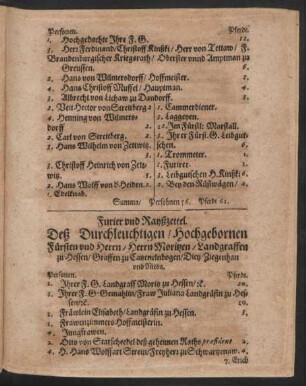 Personen. Pferde.
1. Hochgedachte Ihre F. G. 12.
5. Herr Ferdinand/Christoff Kinßki/Herr von Tettaw/F.
Brandenburgischer Kriegsrath/Oberster vnnd Amptman zu
Greussen. 6.
2. Hans von Wilmersdorff/Hoffmeister. 2.
4. Hans Christoff Muffel/Hauptman. 4.
1. Albrecht von Lichaw zu Dandorff. 2.
2. Veit Hector von Streitberg 2.
4. Henning von Wilmers-
dorff 2.
2. Carl von Streitberg. 2.
1. Hans Wilhelm von Zettwitz.
1.
1. Christoff Heinrich von Zett-
witz. 1.
2. Hans Wolff von der Heiden. 2.
1. Edelknab.
1. Cammerdiener. 1.
1. Laggeyen.
12. Im Fürstl: Marstall.
2. Ihrer Fürstl. G. Leibgut-
schen. 6.
1. Trommeter. 1.
1. Furirer. 1.
2. Leibgutschen H. Kinßki: 6.
5. Bey den Rüstwägen/ 2.
Summa/ Persohnen 56. Pferde 61.
Furier vnd Rayßzettel.
Deß Durchleuchtigen/Hochgebornen
Fürsten vnd Herrn/Herrn Moritzen/Landgraffen
zu Hessen/Graffen zu Catzenelnbogen/Dietz Ziegenhan
vnd Nidda.
Personen. Pferde.
1. Ihrer F. G. Landgraff Moritz zu Hessen/ꝛc. 20.
1. Ihrer F. G. Gemahlin/Fraw Juliana Landgräfin zu Hes-
sen/ꝛc. 10.
1. Fräwlein Elisabeth/Landgräfin zu Hessen. 8.
1. Frawenzimmers Hoffmeisterin.
4. Jungfrawen.
2. Otto von Starschedel deß geheimen Raths præsident 2.
4. H. Hans Wolffart Streuf/Freyherr zu Schwartzenaw. 4.
7. Erich